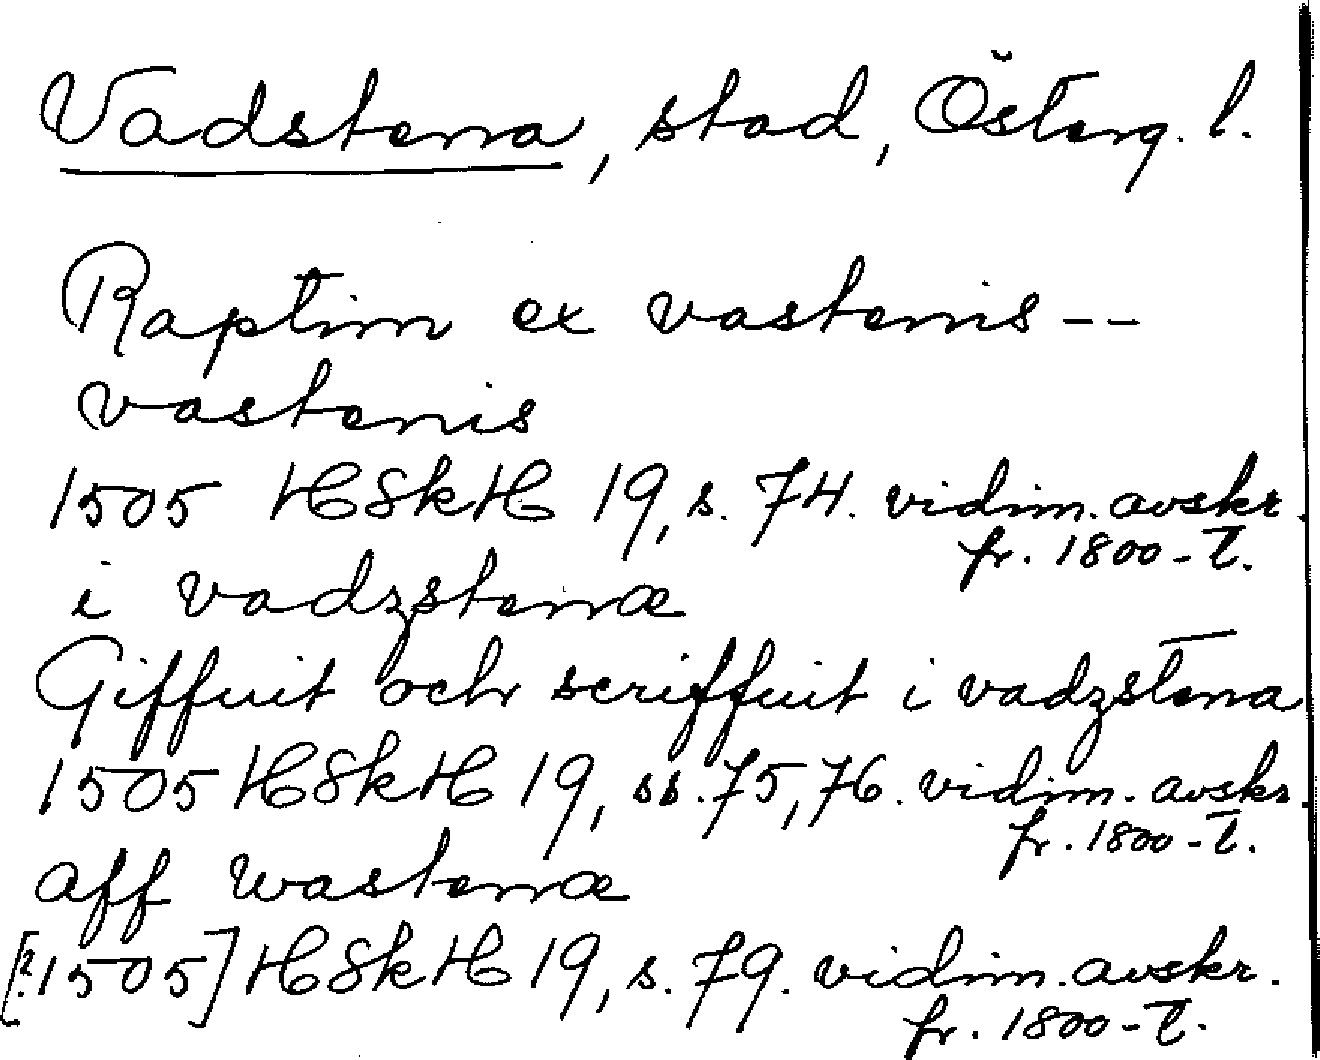 Vadstena, stad, Österg. l.
Raptim ex vastenis --
vastenis
1505 HSkH 19, s. 74. vidim. avskr.
fr. 1800-t.
i vadzstenæ
Giffuit och scriffuit i vadzstena
1505 HSkH 19, ss. 75, 76. vidim. avskr.
fr. 1800-t.
aff wastenæ
[?1505] HSkH 19, s. 79. vidim. avskr.
fr. 1800-t.